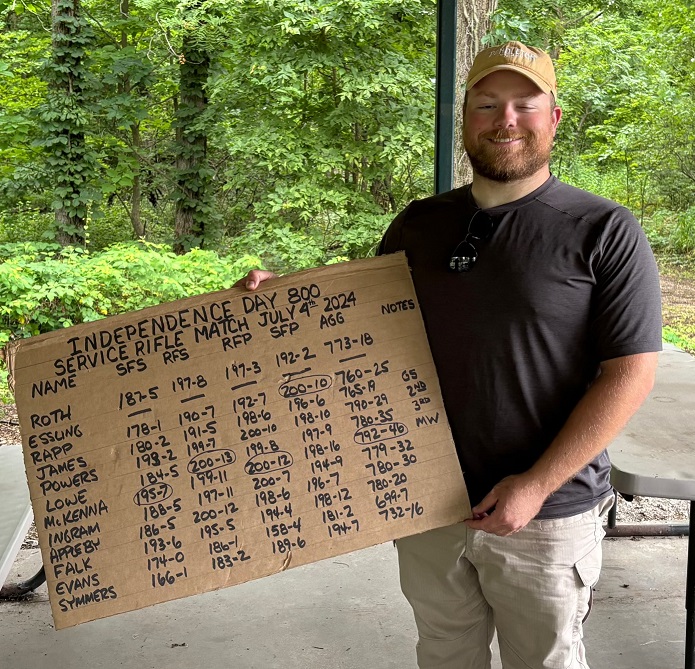 INDEPENDENCE DAY 800
SERVICE RIFLE MATCH JULY 4th 2024
NAME SFS RFS RFP SFP AGG NOTES
ROTH 187-5 197-8 197-3 192-2 773-18
ESSLING — — — — —
RAPP 178-1 190-7 192-7 200-10 760-25
JAMES 180-2 191-5 198-6 196-6 765-19 GS
POWERS 193-2 199-7 200-10 198-10 790-29 2ND
LOWE 184-5 200-13 199-8 197-9 780-35 3RD
McKENNA 195-7 199-11 200-12 198-16 792-46 MW
INGRAM 188-5 197-11 200-7 194-9 779-32
APPLEBY 186-5 200-12 198-6 196-7 780-30
FALK 193-6 195-5 194-4 198-12 780-20
EVANS 174-0 186-1 158-4 181-2 699-7
SYMMERS 166-1 183-2 189-6 194-7 732-16